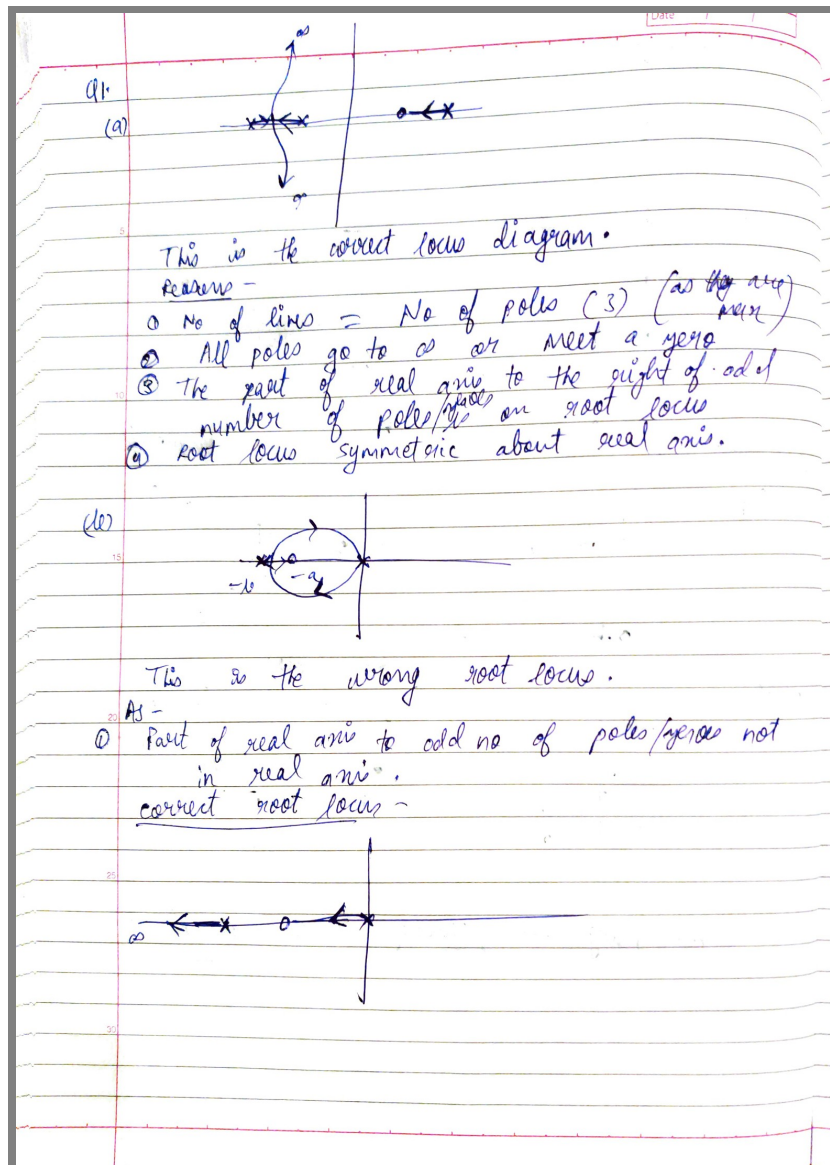 Date / /
Q1.
(a)
∞
∞
This is the correct locus diagram.
Reasons -
① No of lines = No of poles (3) (as they are max)
② All poles go to ∞ or meet a zero
③ The part of real axis to the right of odd
number of poles/zeroes is on root locus
④ Root locus symmetric about real axis.
(b)
-b
-a
This is the wrong root locus.
As -
① Part of real axis to odd no of poles/zeroes not
in real axis.
correct root locus -
∞
5
10
15
20
25
30